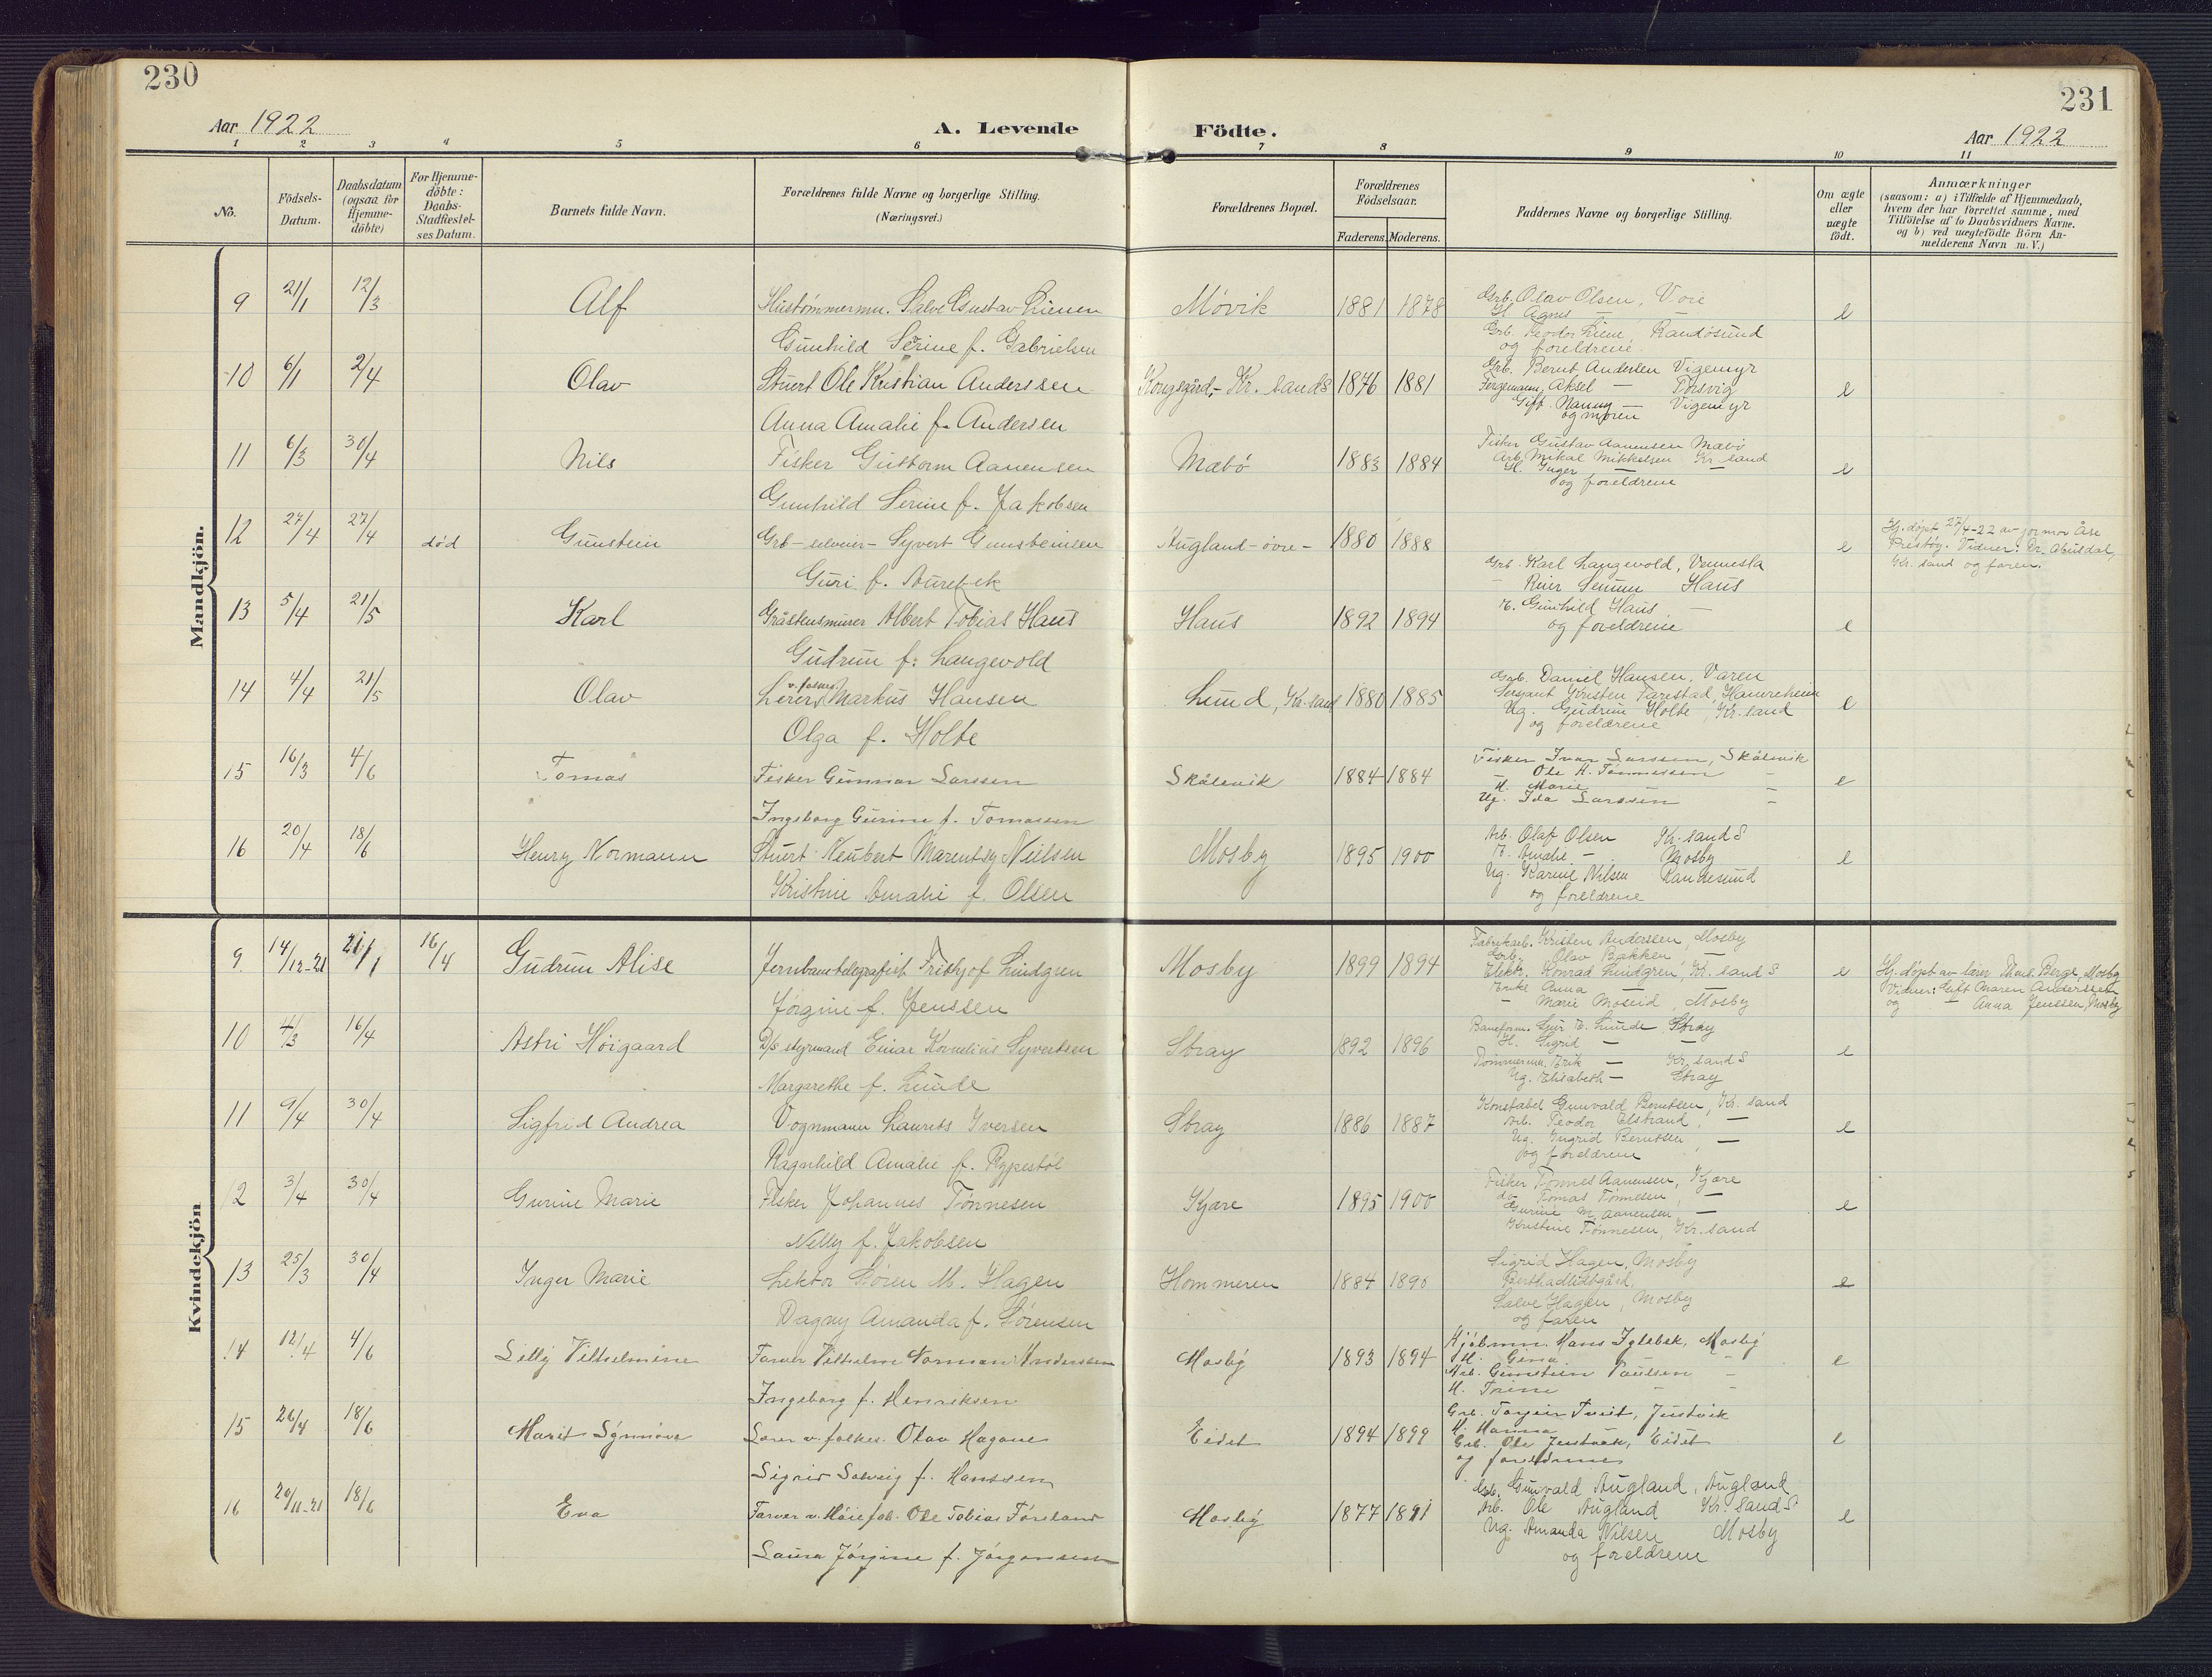 230
231
Aar 1922
A. Levende
Födte.
Aar 1922
1 2 3 4 5 6 7 8 9 10 11
No.
Födsels-Datum.
Daabsdatum (ogsaa for Hjemme-döbte)
For Hjemme-döbte: Daabs-Stadfæstel-ses Datum.
Barnets fulde Navn.
Forældrenes fulde Navne og borgerlige Stilling.
(Næringsvei.)
Forældrenes Bopæl.
Forældrenes Födselsaar.
Faderens. Moderens.
Faddernes Navne og borgerlige Stilling.
Om ægte eller uægte födt.
Anmærkninger
(saasom: a) i Tilfælde af Hjemmedaab,
hvem der har forrettet samme, med
Tilföielse af to Daabsvidners Navne,
og b) ved uægtefödte Börn An-
melderens Navn m. V.)
Mandkjön.
9 21/1 12/3 Alf Hustømmermn. Salve Gustav Lienen Møvik 1881 1878 Grb. Olav Olsen, Voie e
H. Agnes —
Gunhild Serine f. Gabrielsen
Grb. Teodor Liene, Randøsund
og foreldrene
10 6/1 2/4 Olav Stuert Ole Kristian Anderssen Kongsgård, Kr. sands 1876 1881 Grb. Bernt Andersen Vigemyr e
Fergemann Aksel — Torsvig
Gift. Nanny — Vigemyr
og moren
Anna Amalie f. Andersen
11 6/3 30/4 Nils Fisker Guttorm Aanensen Mæbø 1883 1884 Fisker Gustav Aanensen Mæbø e
Arb. Mikal Mikkelsen Kr. sand
H. Inger — —
og foreldrene
Gunhild Serine f. Jakobsen
12 27/4 27/4 død Gunstein Grb - selveier - Syvert Gunsteinsen Augland - øvre - 1880 1888 e Hj. døpt 27/4-22 av jormor Åse
Prestøy. Vidner: Dr. Abusdal,
Kr. sand og faren.
Guri f. Aurebek
13 5/4 21/5 Karl Gråstensmurer Albert Tobias Haus Haus 1892 1894 Grb. Karl Langevold, Vennesla e
— Reier Senum Haus
E. Gunhild Haus —
og foreldrene
Gudrun f. Langevold
14 4/4 21/5 Olav Lærer v. folkesk. Markus Hansen Lund, Kr. sand 1880 1885 Grb. Daniel Hansen, Varen e
Sersjant Kristen Tarestad,
Ug. Gudrun Holte, Kr. sand
og foreldrene
Olga f. Holte
15 16/3 4/6 Tomas Fisker Gunnar Larssen Skålevik 1884 1884 Fisker Ivar Larssen, Skålevik e
— Ole H. Tønnessen —
H. Marie —
Ug. Ida Larssen —
Ingeborg Gurine f. Tomassen
16 20/4 18/6 Henry Normann Stuert Neubert Nielsen Mosby 1895 1900 Arb. Olaf Olsen Kr. sand S e
E. Amalie — Mosby
Ug. Karine Nilsen Randesund
og foreldrene
Kristine Amalie f. Olsen
Kvindekjön
9 14/12-21 21/1 16/4 Gudrun Alise Jernbanetelegrafist Fridtjof Lindgren Mosby 1899 1894 Fabrikarb. Kristen Anderssen, Mosby e Hj. døpt av lærer Berge, Mosby
Grb. Olav Bakken, —
Elektr. Konrad Lindgren, Kr. sand S Vidner: Gift Maren Anderssen
Enke Anna —
— Marie Moseid, Mosby og — Anna Jenssen, Mosby
Jørgine f. Jenssen
10 4/3 16/4 Astri Høigaard D/s styrmand Einar Kornelius Syvertsen Stray 1892 1896 Baneform. Lunde, Stray e
H. Sigrid — —
Tømmermn. Erik — Kr. sand S
Ug. Elisabeth — Stray
Margarethe f. Lunde
11 9/4 30/4 Sigfrid Andrea Vognmann Laurits Iversen Stray 1886 1887 Konstabel Gunvald Berntsen, Kr. sand e
Arb. Teodor Elstrand, —
Ug. Ingrid Berntsen, —
og foreldrene
Ragnhild Amalie f. Rypestøl
12 3/4 30/4 Gurine Marie Fisker Johannes Tønnesen Kjære 1895 1900 Fisker Tønnes Aanensen, Kjære e
do Tomas Tønnesen, —
Gurine M. Aanensen, —
Kristine Tønnesen, Kr. sand
Nelly f. Jakobsen
13 25/3 30/4 Inger Marie Lektor Søren M. Hagen Hommeren 1884 1890 Sigrid Hagen, Mosby e
Salve Hagen, Mosby
og faren
Dagny Amanda f. Sørensen
14 12/4 4/6 Lilly Vilhelmine Farver Vilhelm Norman Anderssen Mosby 1893 1894 Kjøbmn. Hans Iglebek, Mosby e
H. Gina —
Arb. Gunstein Paulsen —
H. Trine — —
Ingeborg f. Henriksen
15 26/4 18/6 Marit Synnøve Lærer v. folkes. Olav Hagane Eidet 1894 1899 Grb. Torjeir Tveit, Justvik e
H. Hanna
Grb. Ole Justvik, Eidet
og foreldrene
Sigrid Solveig f. Hanssen
16 20/11-21 18/6 Eva Farver v. Høie fab. Ole Tobias Føreland Mosby 1877 1891 Grb. Gunvald Augland, Augland e
Arb. Ole Augland Kr. sand S
Ug. Amanda Nilsen Mosby
og foreldrene
Laura Jørgine f. Jørgensen